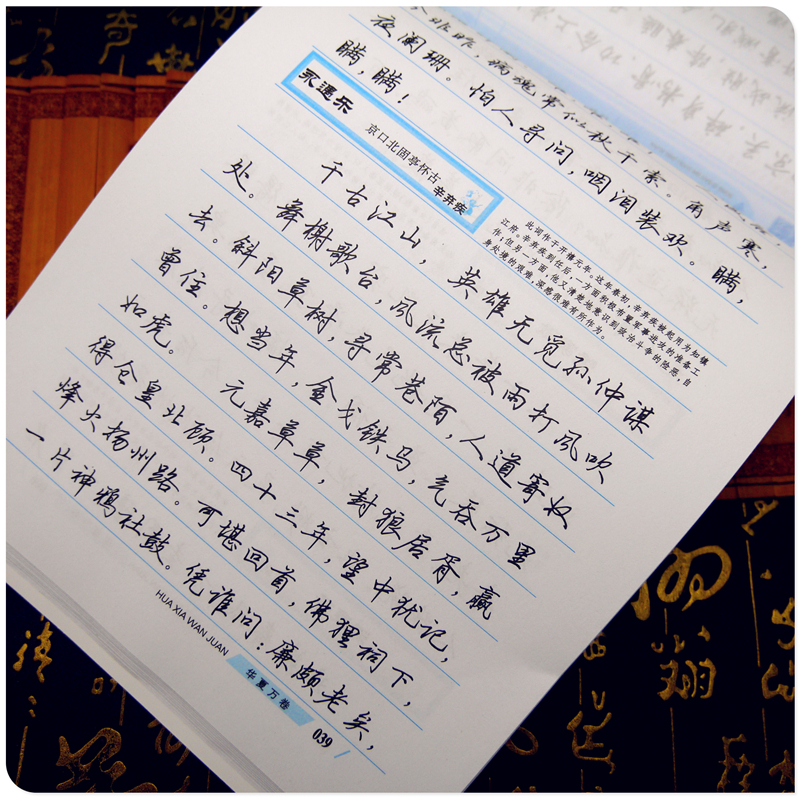 非昨，病魂常似秋千索。角声寒，
夜阑珊。怕人寻问，咽泪装欢。瞒，
瞒，瞒！
永遇乐
京口北固亭怀古
辛弃疾
此词作于开禧元年。这年春初，辛弃疾被起用为知镇
江府。辛弃疾到任后，一方面积极布置军事进攻的准备工
作；但另一方面，他又清楚地意识到政治斗争的险恶，自
身处境的艰难，深感很难有所作为。
千古江山，英雄无觅孙仲谋
处。舞榭歌台，风流总被雨打风吹
去。斜阳草树，寻常巷陌，人道寄奴
曾住。想当年，金戈铁马，气吞万里
如虎。 元嘉草草，封狼居胥，赢
得仓皇北顾。四十三年，望中犹记，
烽火扬州路。可堪回首，佛狸祠下，
一片神鸦社鼓。凭谁问：廉颇老矣，
HUA XIA WAN JUAN
华夏万卷
039